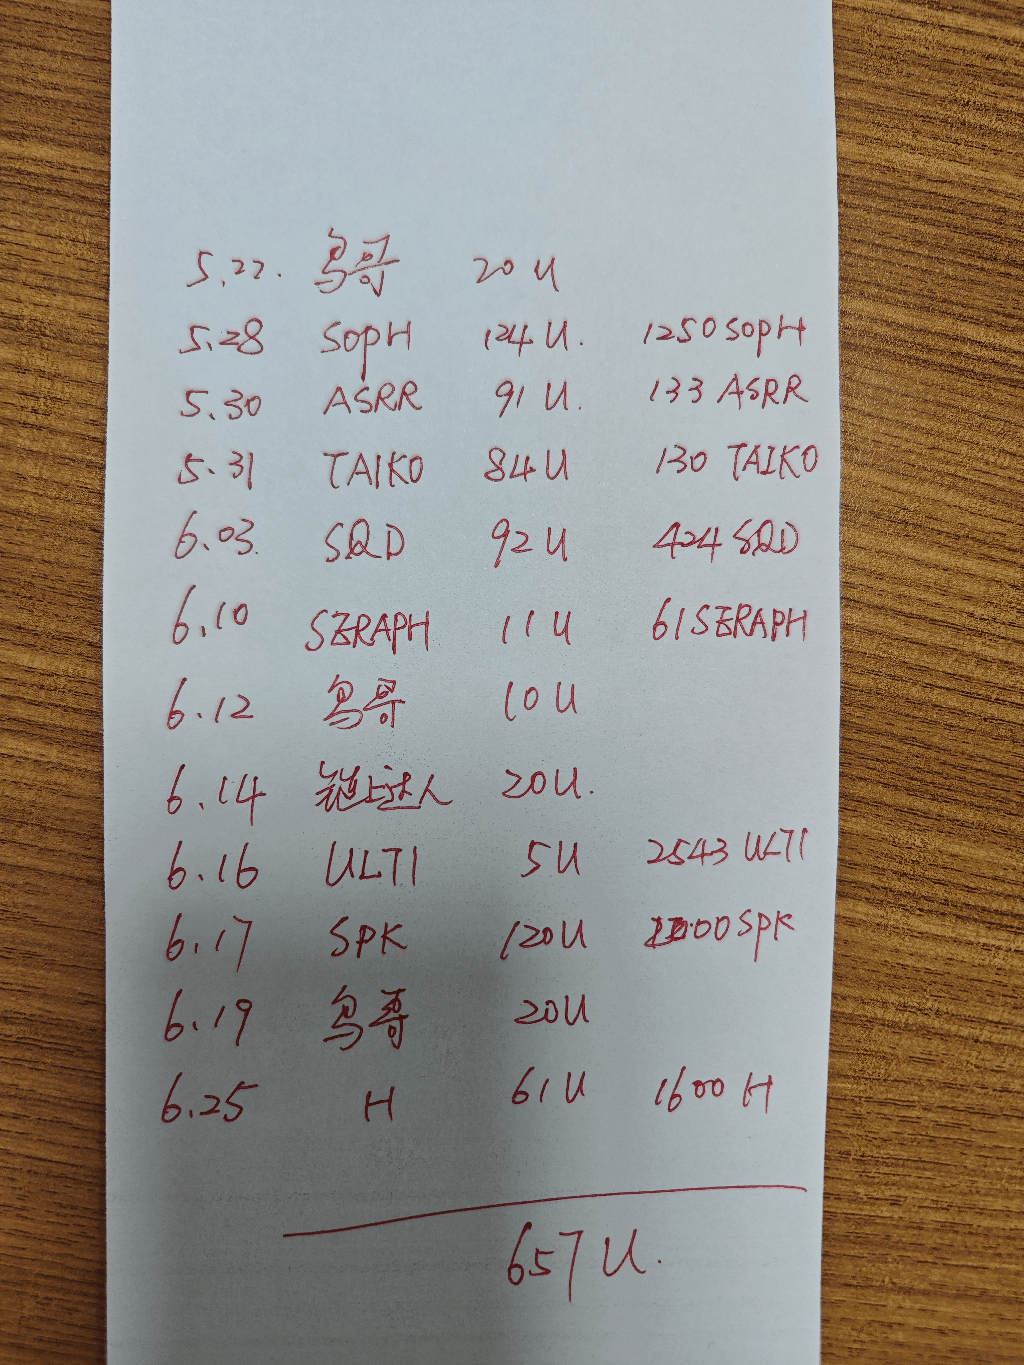 5.22. 鸟哥 20U
5.28 SOPH 124U. 1250 SOPH
5.30 ASRR 91U. 133 ASRR
5.31 TAIKO 84U 130 TAIKO
6.03. SQD 92U 424 SQD
6.10 SERAPH 11U 61 SERAPH
6.12 鸟哥 10U
6.14 链上达人 20U.
6.16 ULTI 5U 2543 ULTI
6.17 SPK 120U SPK
6.19 鸟哥 20U
6.25 H 61U 1600 H
657U.